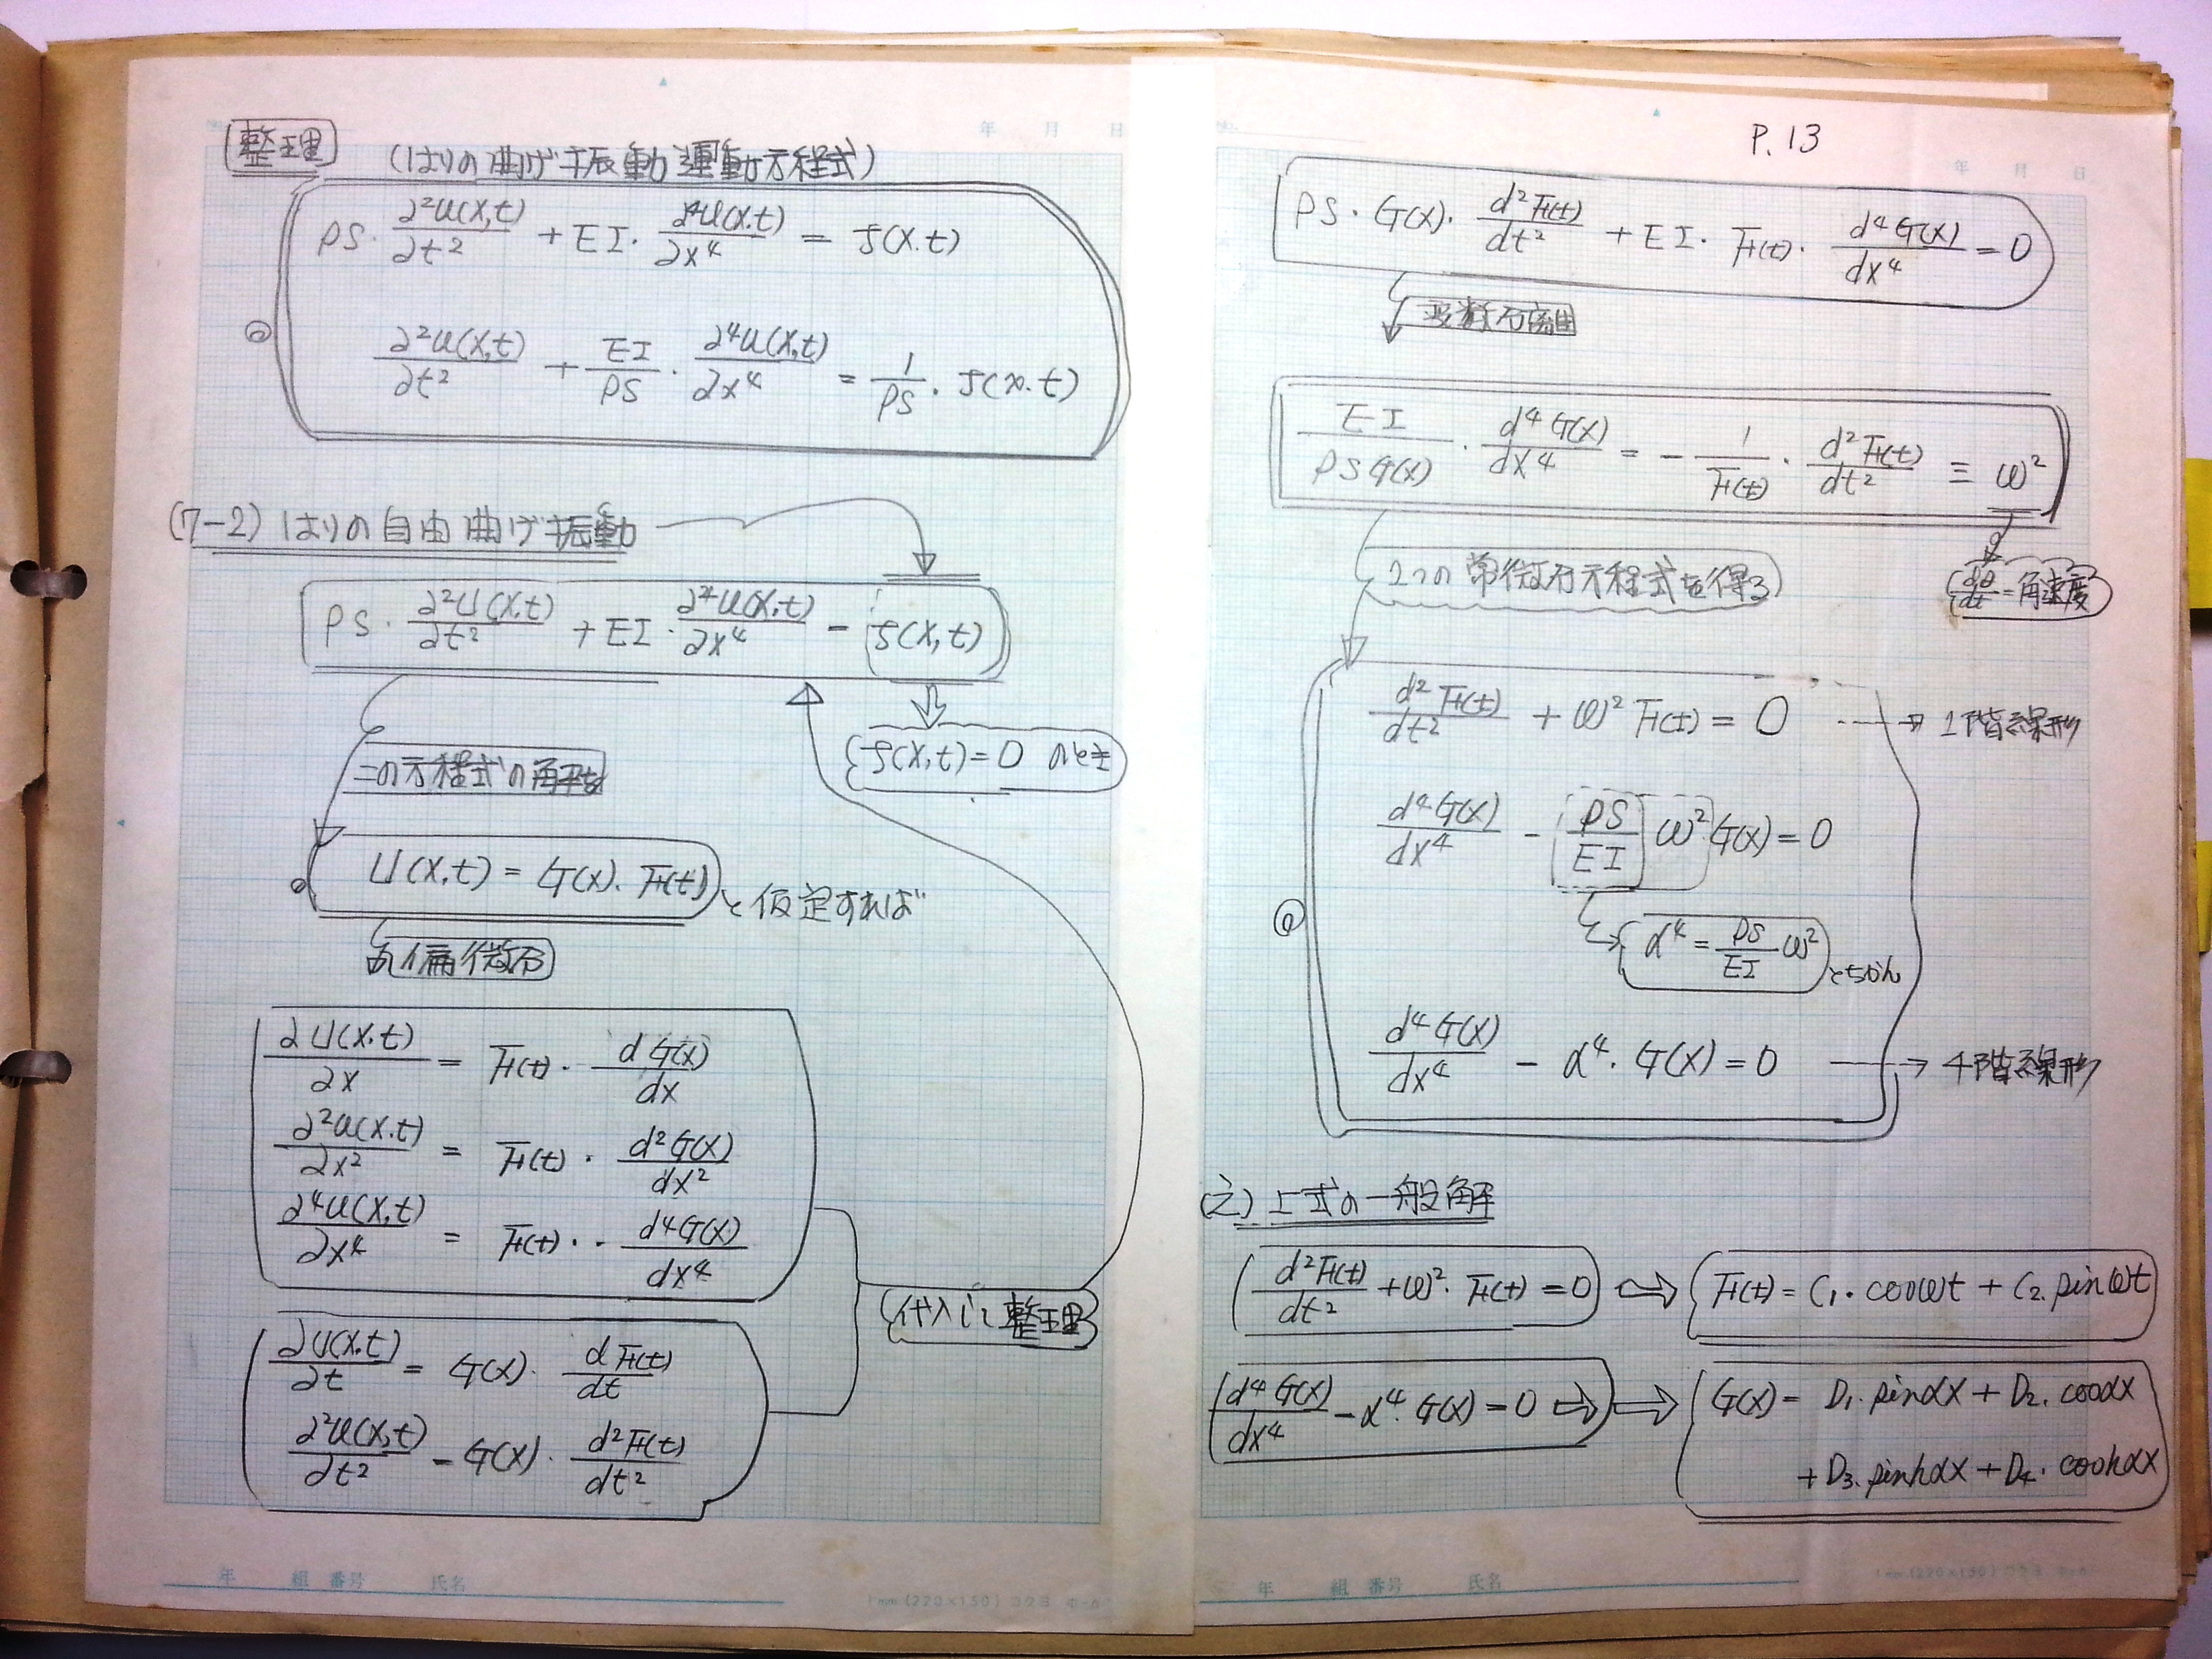 年 月 日
整理 (はりの曲げ振動運動方程式)
ρS・∂²u(x,t)/∂t² + EI・∂⁴u(x,t)/∂x⁴ = f(x,t)
∂²u(x,t)/∂t² + EI/ρS・∂⁴u(x,t)/∂x⁴ = 1/ρS・f(x,t)
(7-2) はりの自由曲げ振動
ρS・∂²U(x,t)/∂t² + EI・∂⁴u(x,t)/∂x⁴ − f(x,t)
f(x,t)=0 のとき
この方程式の解を
U(x,t) = G(x)・F(t) と仮定すれば
偏微分
∂U(x,t)/∂x = F(t)・dG(x)/dx
∂²u(x,t)/∂x² = F(t)・d²G(x)/dx²
∂⁴u(x,t)/∂x⁴ = F(t)・・d⁴G(x)/dx⁴
代入して整理
∂U(x,t)/∂t = G(x)・dF(t)/dt
∂²u(x,t)/∂t² − G(x)・d²F(t)/dt²
年 組 番号 氏名
P.13
No. 年 月 日
ρS・G(x)・d²F(t)/dt² + EI・F(t)・d⁴G(x)/dx⁴ = 0
変数分離
EI/ρSG(x)・d⁴G(x)/dx⁴ = −1/F(t)・d²F(t)/dt² ≡ ω²
2つの常微分方程式を得る
dθ/dt = 角速度
d²F(t)/dt² + ω²F(t) = 0 → 1階線形
d⁴G(x)/dx⁴ − ρS/EI ω²G(x) = 0
α⁴ = ρS/EI ω²
d⁴G(x)/dx⁴ − α⁴・G(x) = 0 → 4階線形
上式の一般解
d²F(t)/dt² + ω²・F(t) = 0 ⇨ F(t) = C₁・cosωt + C₂・sinωt
d⁴G(x)/dx⁴ − α⁴・G(x) = 0 ⇨ G(x) = D₁・sinαx + D₂・cosαx
+ D₃・sinhαx + D₄・coshαx
年 組 番号 氏名